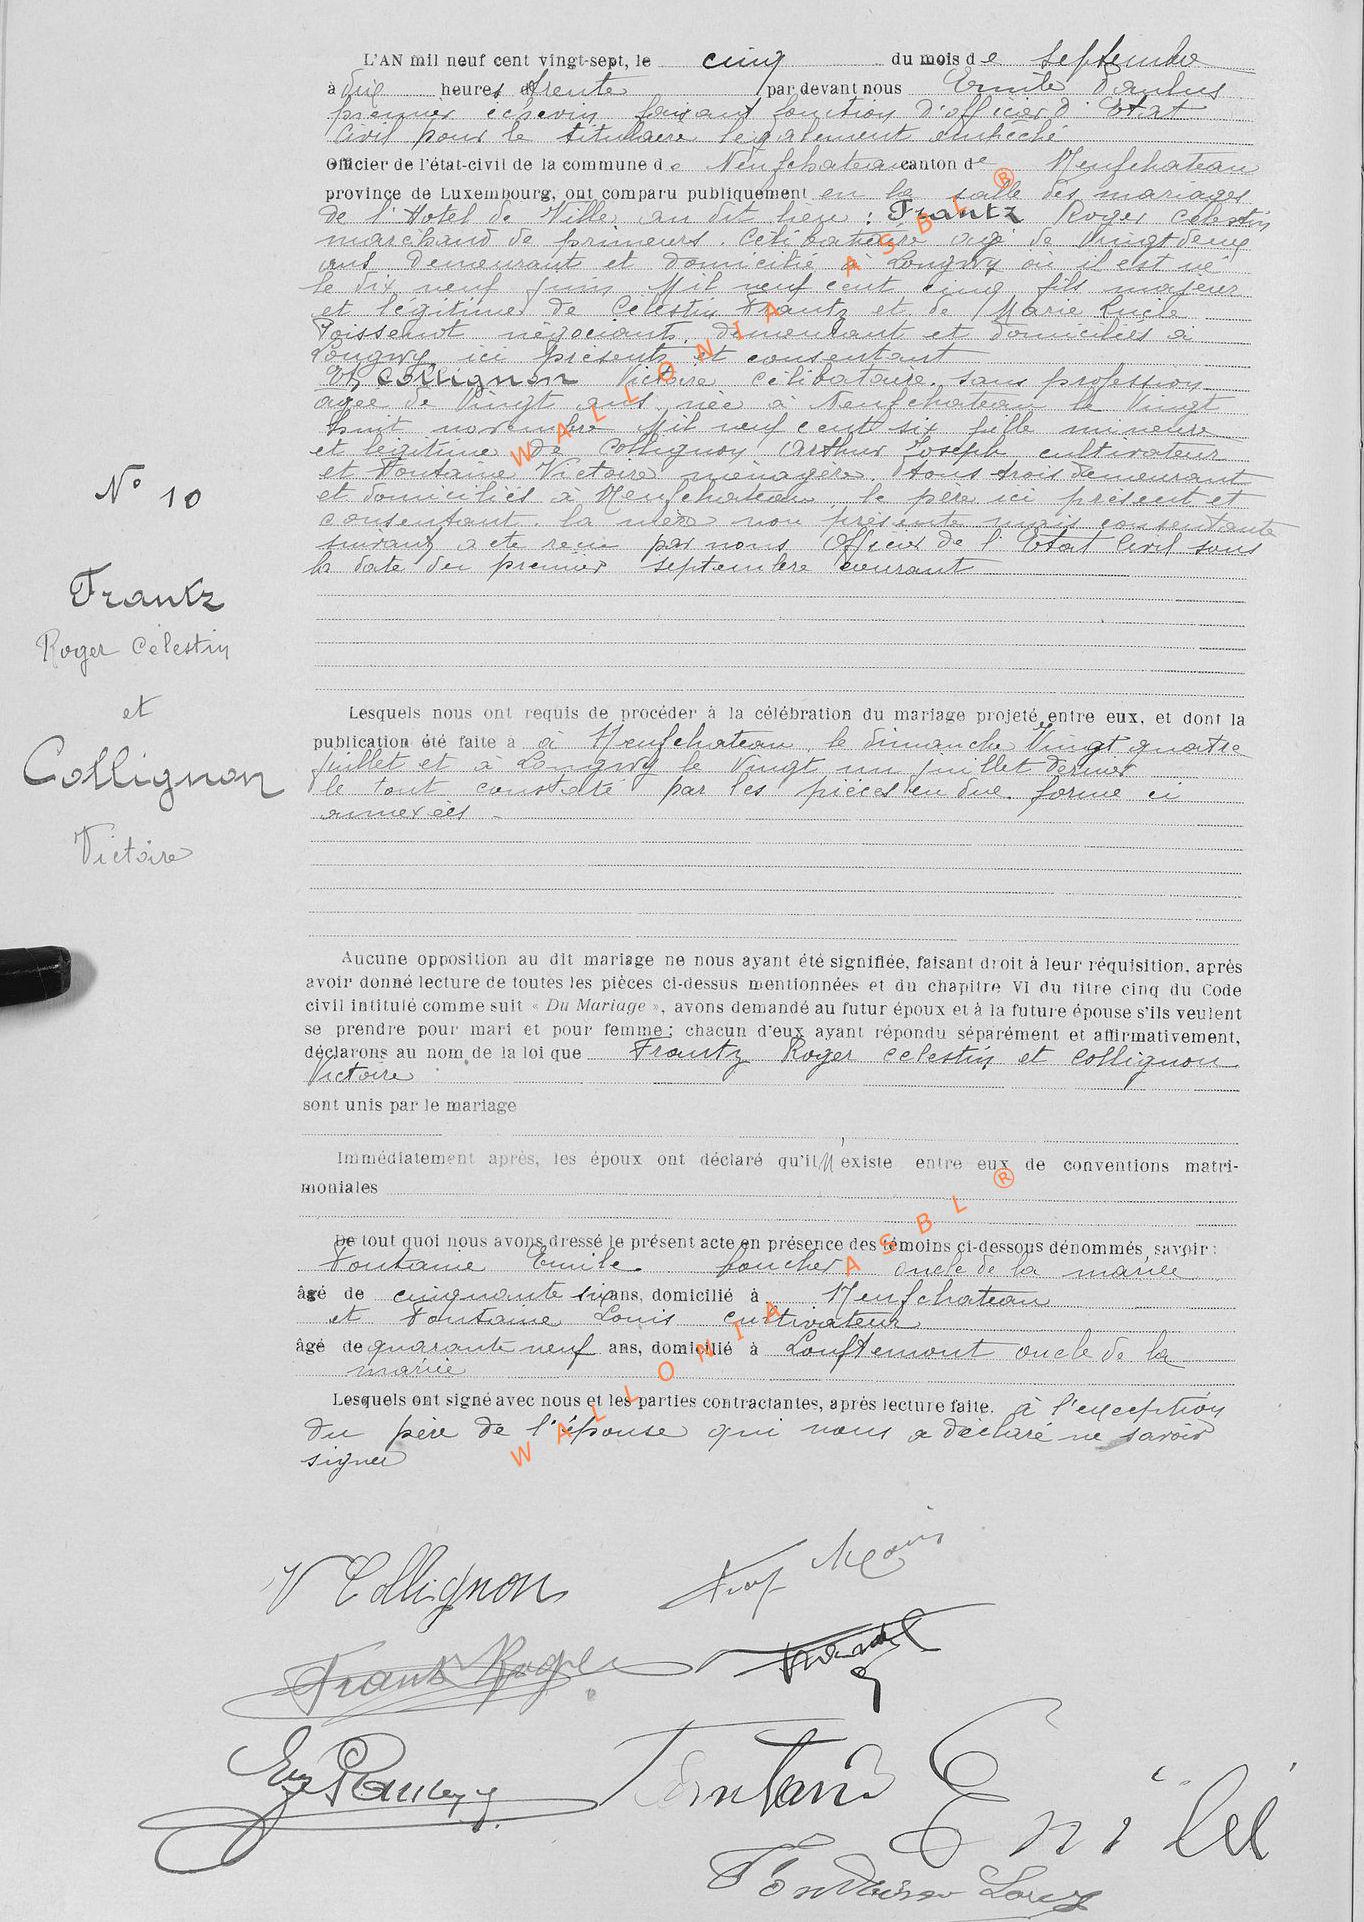 L'AN mil neuf cent vingt-sept, le cinq du mois de septembre
à dix heures trente par devant nous Emile
premier échevin faisant fonction d'officier d'Etat
Civil pour le titulaire légalement empêché
Officier de l'état-civil de la commune de Neufchateau canton de Neufchateau
province de Luxembourg, ont comparu publiquement en la salle des mariages
de l'Hotel de Ville au dit lieu : Frantz Roger Célestin
marchand de primeurs. célibataire agé de vingt deux
ans demeurant et domicilié à Longwy où il est né
le dix neuf juin Mil neuf cent cinq fils majeur
et légitime de Célestin Frantz et de Marie Lucie
négociants, demeurant et domiciliés à
Longwy, ici présents et consentant
Et Collignon Victoire célibataire. sans profession
agée de vingt ans née à Neufchateau le vingt
huit novembre Mil neuf cent six fille mineure
et légitime de Collignon Arthur Joseph cultivateur
et Fontaine Victoire ménagère tous trois demeurant
et domiciliés à Neufchateau le père ici présent et
consentant. la mère non présente mais consentante
suivant acte reçu par nous Officier de l'Etat Civil sous
la date du premier septembre courant
N° 10
Frantz
Roger Célestin
et
Collignon
Victoire
Lesquels nous ont requis de procéder à la célébration du mariage projeté entre eux, et dont la
publication été faite à à Neufchateau, le dimanche vingt quatre
juillet et à Longwy le vingt un juillet dernier
le tout constaté par les pièces en due forme ci
annexées -
Aucune opposition au dit mariage ne nous ayant été signifiée, faisant droit à leur réquisition, après
avoir donné lecture de toutes les pièces ci-dessus mentionnées et du chapitre VI du titre cinq du Code
civil intitulé comme suit « Du Mariage », avons demandé au futur époux et à la future épouse s'ils veulent
se prendre pour mari et pour femme ; chacun d'eux ayant répondu séparément et affirmativement,
déclarons au nom de la loi que Frantz Roger Célestin et Collignon
Victoire
sont unis par le mariage
Immédiatement après, les époux ont déclaré qu'il n'existe entre eux de conventions matri-
moniales
De tout quoi nous avons dressé le présent acte en présence des témoins ci-dessous dénommés, savoir :
Fontaine Emile boucher oncle de la mariée
âgé de cinquante six ans, domicilié à Neufchateau
et Fontaine Louis cultivateur
âgé de quarante neuf ans, domicilié à Louftémont oncle de la
mariée
Lesquels ont signé avec nous et les parties contractantes, après lecture faite. à l'exception
du père de l'épouse qui nous a déclaré ne savoir
signer
WALLONIA ASBL ®
WALLONIA ASBL ®
V Collignon
Frantz Roger
Fontaine Emile
Fontaine Louis